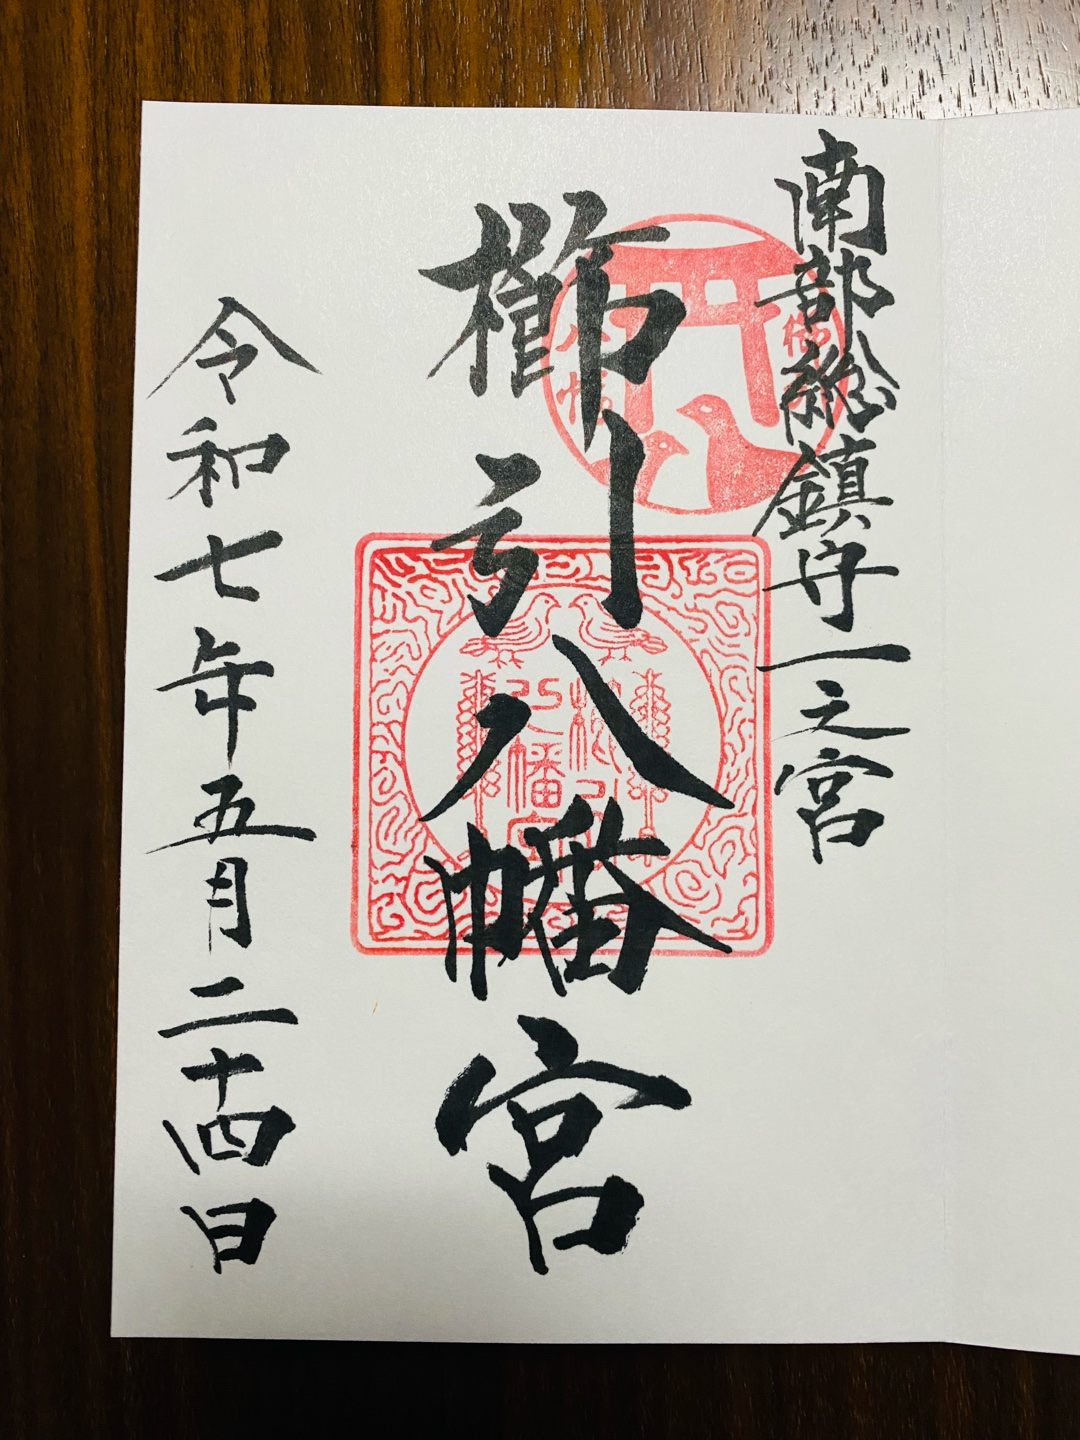 南部総鎮守一之宮
櫛引八幡宮
令和七年五月二十四日